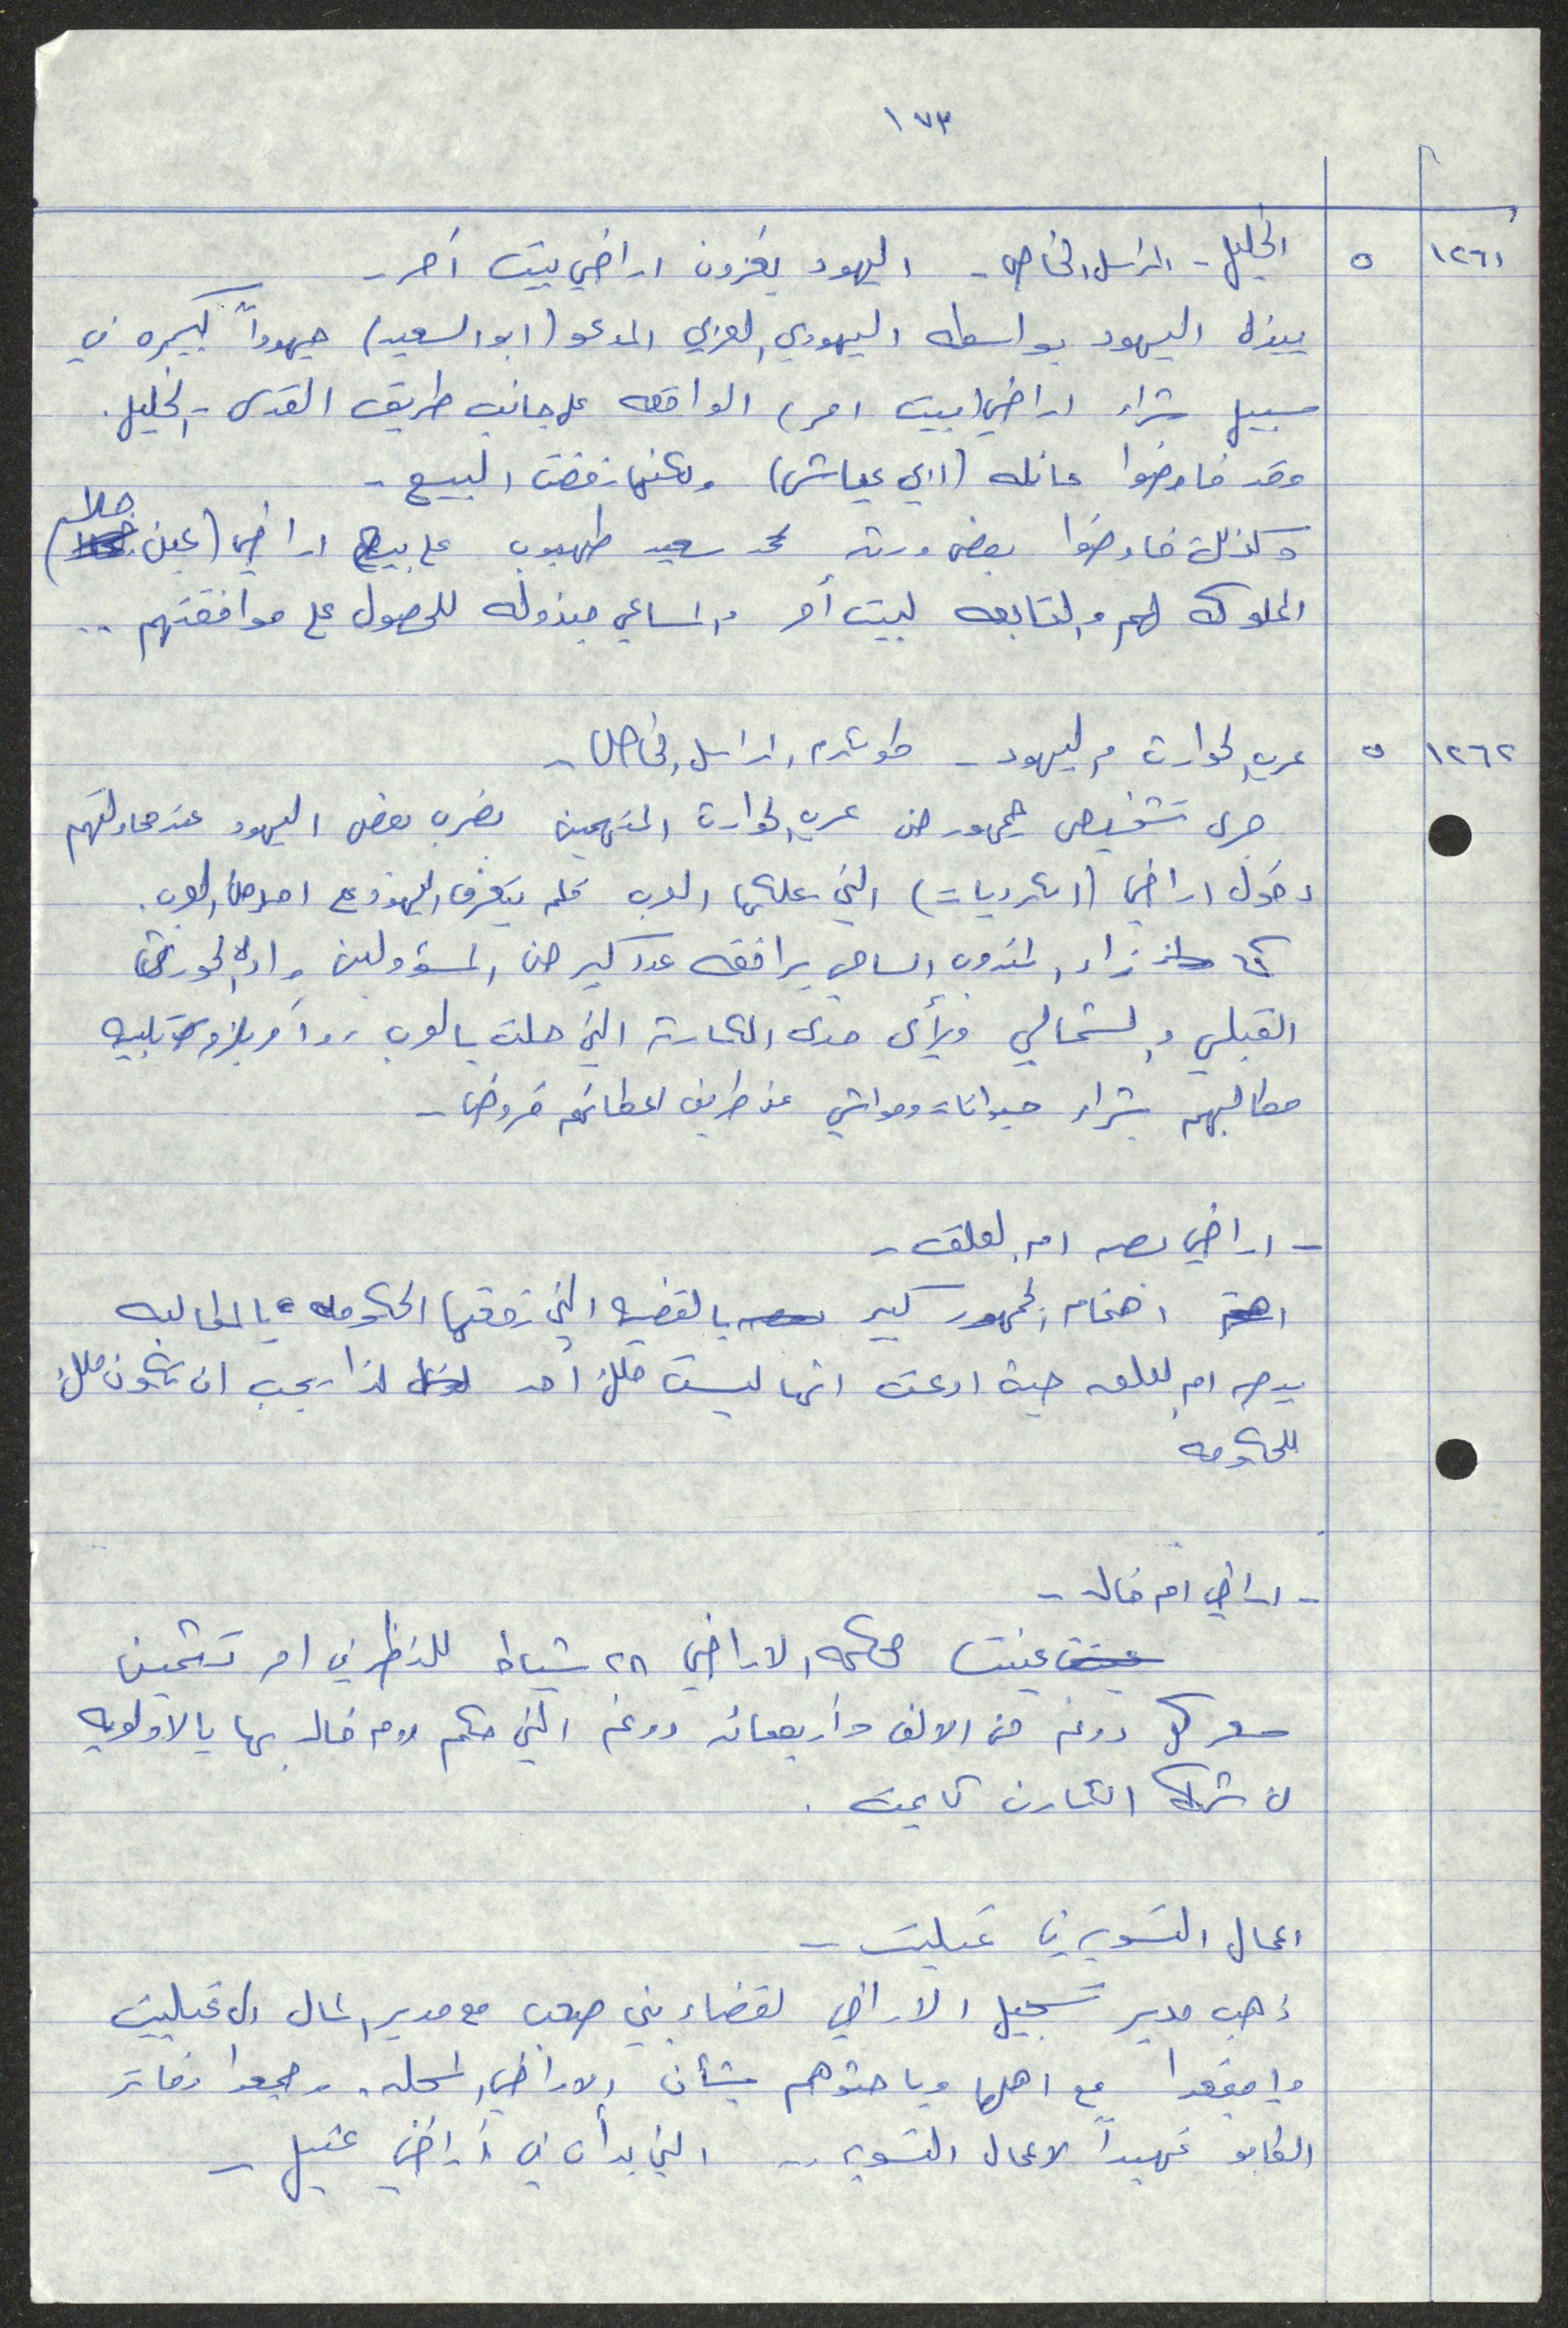 ١٧٣
١٢٦١ ٥ الخليل - المراسل الخاص - اليهود يغزون اراضي بيت أمر -
يبذل اليهود بواسطه اليهودي العربي المدعو (ابو السعيد) جهوداً كبيره في
سبيل شراء اراضي (بيت امر) الواقعه على جانب طريق القدس - الخليل.
وقد فاوضوا عائله (ابي عياش) ولكنها رفضت البيع -
وكذلك فاوضوا بعض ورثه محمد سعيد طهبوب على بيع اراضي (عين
المملوكه لهم والتابعه لبيت أمر والمساعي مبذوله للحصول على موافقتهم ..
١٢٦٢ ٥ عرب الحوارث واليهود - طولكرم، المراسل الخاص -
جرى تشخيص جمهور من عرب الحوارث المتهمين بضرب بعض اليهود عند محاولتهم
دخول اراضي ( التي يملكها العرب فلم يتعرف اليهود على احد من العرب.
كما زار المندوب السامي يرافقه عدد كبير من المسؤولين وادي الحوارث
القبلي والشمالي ورأى مدى الكارثه التي حلت بالعرب، وأمر بلزوم تلبيه
مطالبهم بشراء حيوانات ومواشي عن طريق اعطائهم قروض -
- اراضي بصه ام العلق -
اهتم اهتمام الجمهور كبير بالقضيه التي رفعتها الحكومه بالمطالبه
ببصه ام العلق حيث ادعت انها ليست ملك أحد لذا يجب ان تكون ملك
للحكومه
- اراضي ام خالد -
عينت عينت محكمه الاراضي ٢٨ شباط للنظر في امر تثمين
سعر كل دونم من الالف واربعمائه دونم التي حكم لام خالد بها بالاولويه
لان شركه الكارن كايمت.
اعمال التسويه في عتيل -
ذهب مدير تسجيل الاراضي لقضاء بني صعب مع مدير المال الى
واجتمعوا مع اهلها وباحثوهم بشأن الاراضي المحله. وجمعوا دفاتر
الطابو تمهيداً لاعمال التسويه .. التي بدأت في أراضي عتيل -